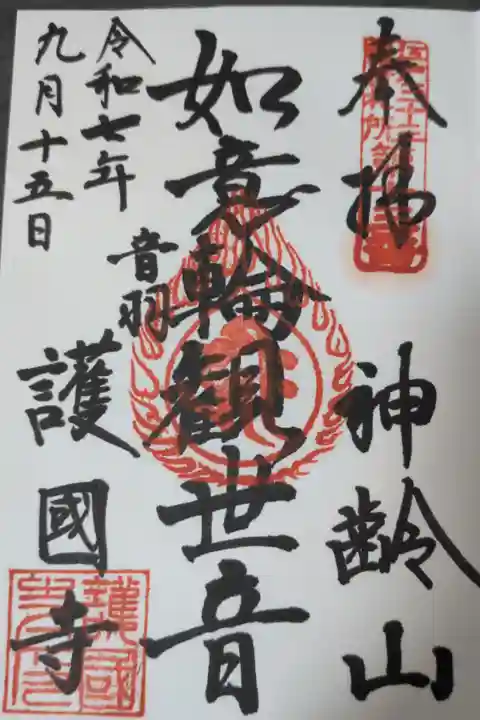 奉拝
神齢山
如意輪観世音
音羽
護國寺
令和七年
九月十五日
護國